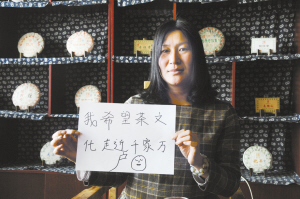 我希望茶文
化走近千家万
户